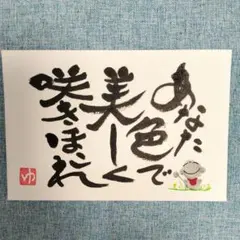 あなた
色で
美しく
咲きほれ
ゆ